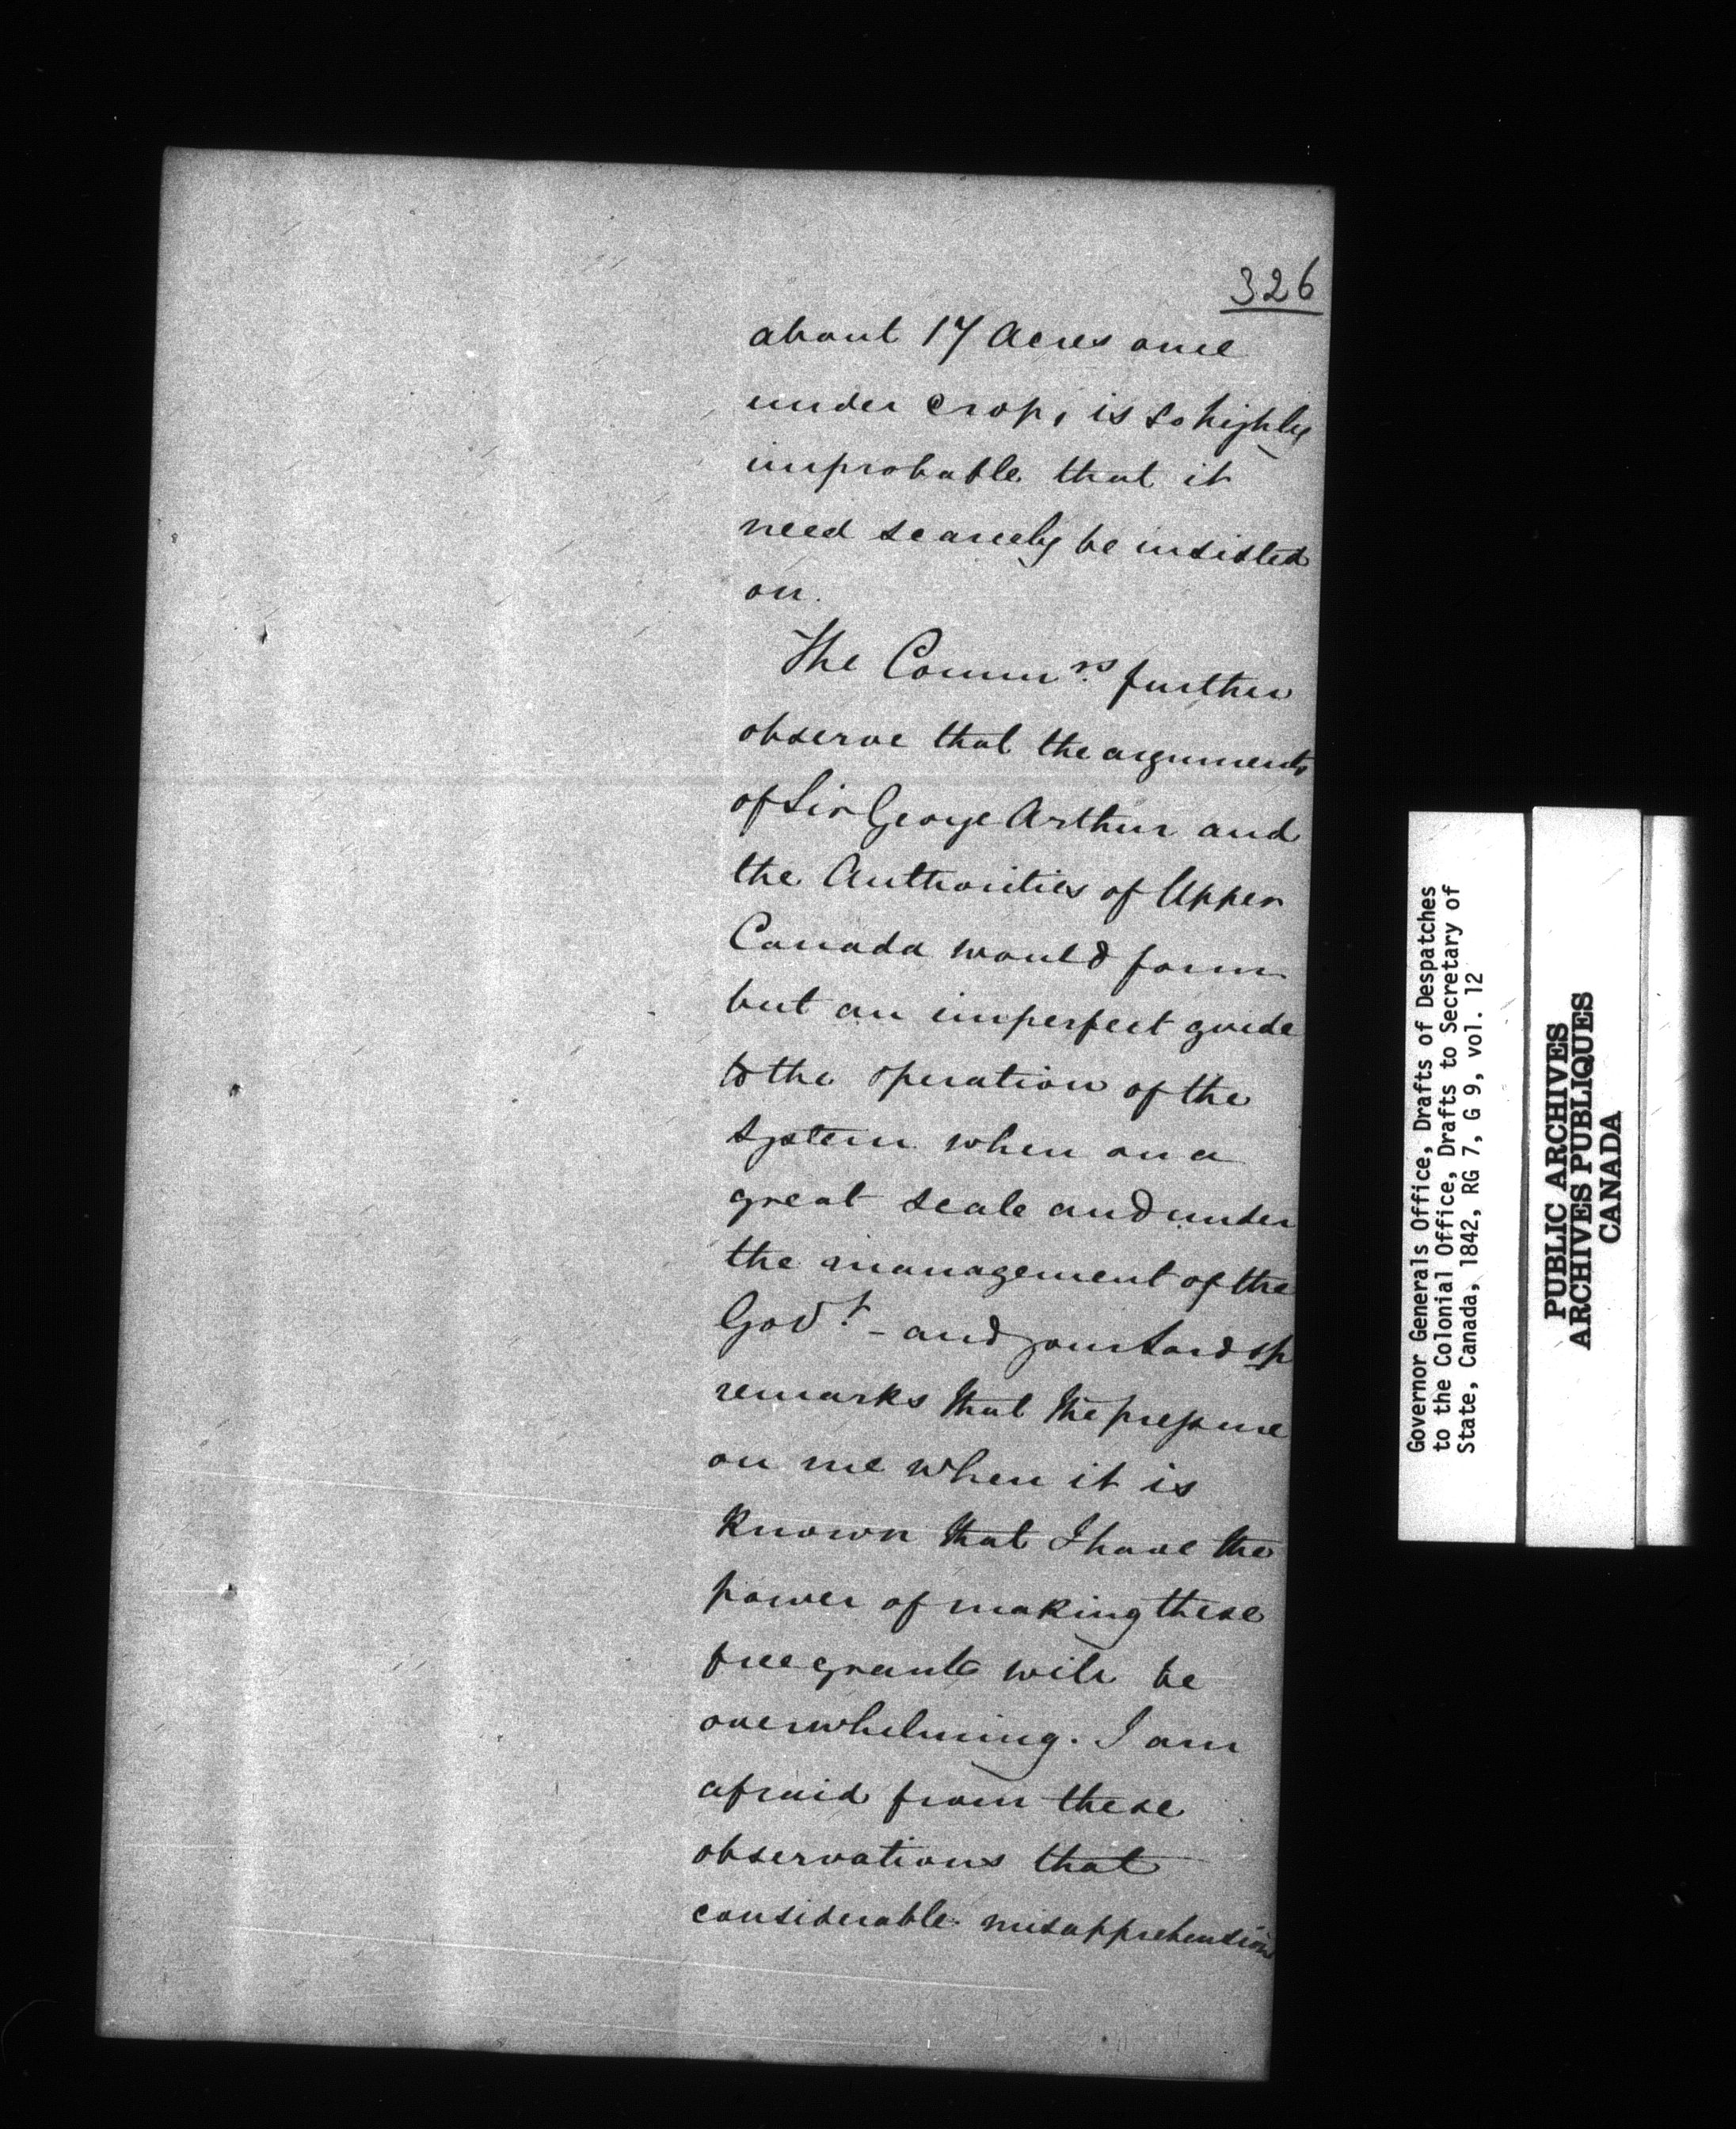 326
about 17 Acres once
under crop, is so highly
improbable that it
need scarcely be insisted
on.
The Commrs. further
observe that the arguments
of Sir George Arthur and
the Authorities of Upper
Canada would form
but an imperfect guide
to the operation of the
system when on a
great scale and under
the management of the
Govt. - and your Lordsp
remarks that the pressure
on me when it is
known that I have the
power of making these
free grants will be
overwhelming. I am
afraid from these
observations that
considerable misapprehension
Governor Generals Office, Drafts of Despatches
to the Colonial Office, Drafts to Secretary of
State, Canada, 1842, RG 7, G 9, vol. 12
PUBLIC ARCHIVES
ARCHIVES PUBLIQUES
CANADA